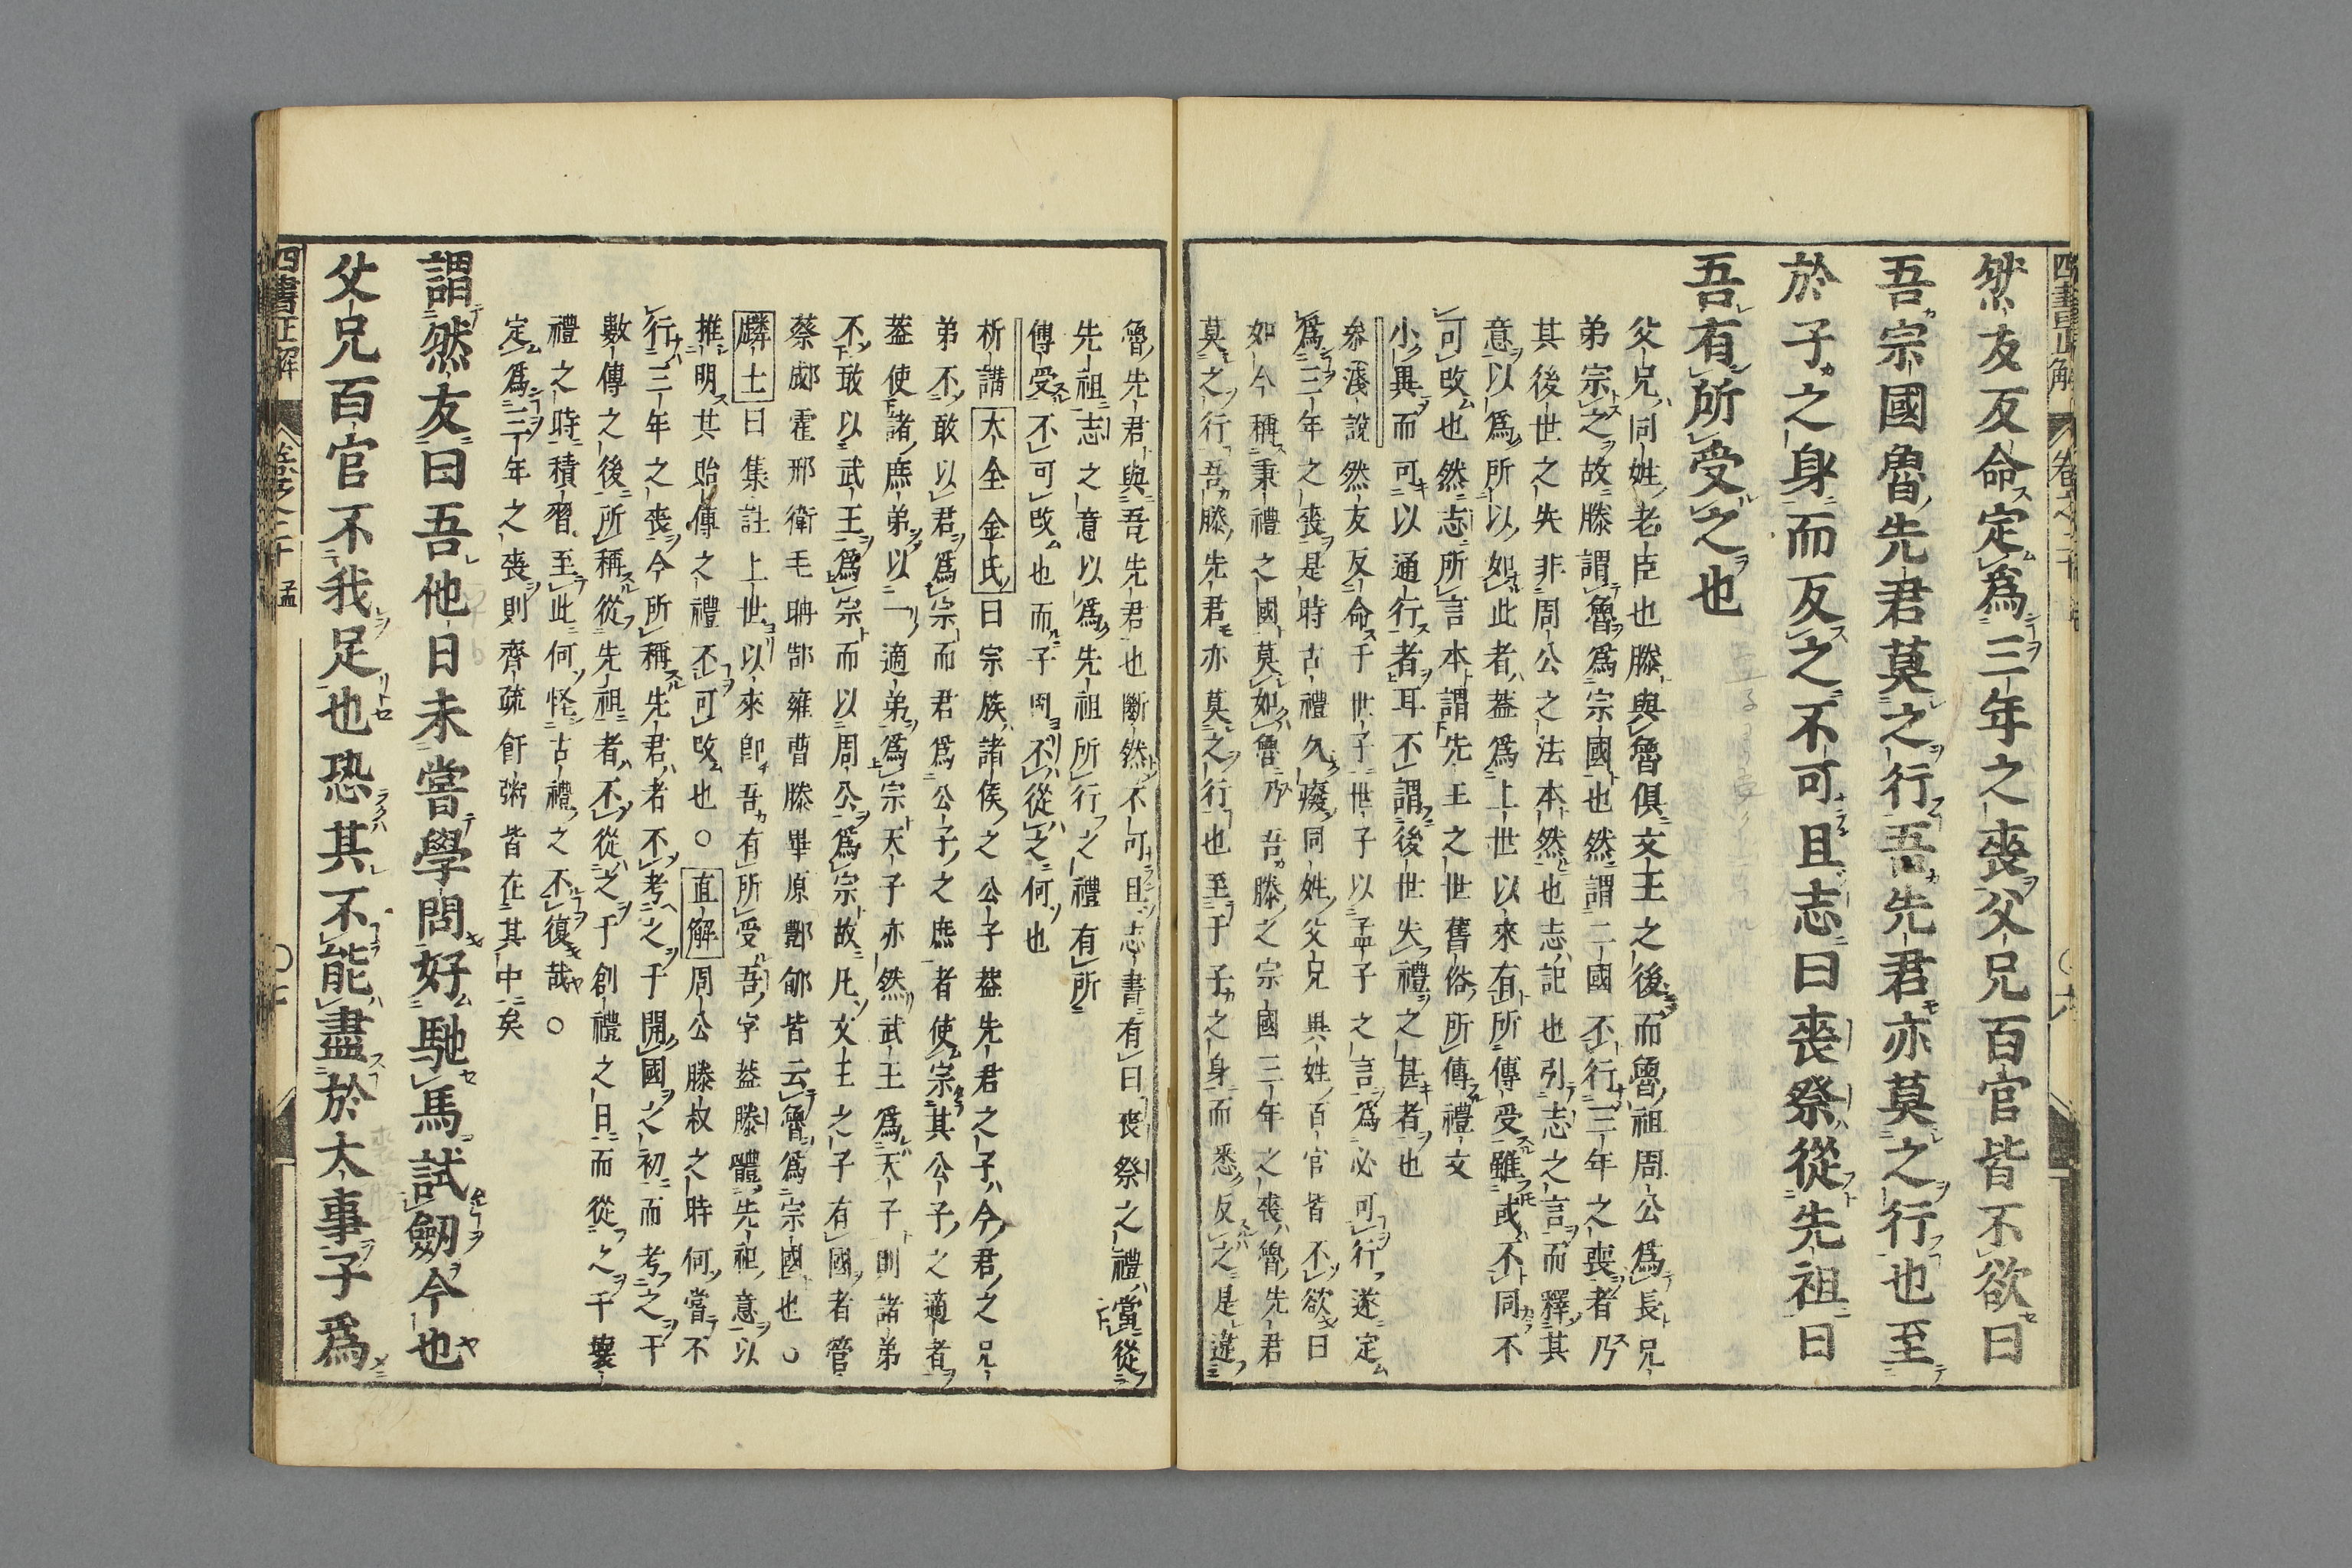 然友反命定為三年之喪父兄百官皆不欲曰
吾宗國魯先君莫之行吾先君亦莫之行也至
於子之身而反之不可且志曰喪祭從先祖曰
吾有所受之也
父兄同姓老臣也滕與魯俱文王之後而魯祖周公爲長兄
弟宗之故滕謂魯爲宗國也然謂二國不行三年之喪者乃
其後世之失非周公之法本然也志記也引志之言而釋其
意以爲所以如此者蓋爲上世以來有所傳受雖或不同不
可改也然志所言本謂先王之世舊俗所傳禮文
小異而可以通行者耳不謂後世失禮之甚者也
參淺說然友反命于世子世子以孟子之言爲必可行遂定
爲三年之喪是時古禮久癈同姓父兄異姓百官皆不欲曰
如今稱秉禮之國莫如魯乃吾滕之宗國三年之喪魯先君
莫之行吾滕先君亦莫之行也至于子之身而悉反之是違
魯先君與吾先君也斷然不可且志書有曰喪祭之禮當從
先祖志之意以爲先祖所行之禮有所
傳受不可改也而子罔不從之何也
析講大全金氏曰宗族諸侯之公子葢先君之子今君之兄
弟不敢以君爲宗而君爲公子之庶者使宗其公子之適者
葢使諸庶弟以一適弟爲宗天子亦然武王爲天子則諸弟
不敢以武王爲宗而以周公爲宗故凡文王之子有國者管
蔡郕霍邢衛毛聃郜雍曹滕畢原酆郇皆云魯爲宗國也○
麟士曰集註上世以來卽吾有所受吾字葢滕體先祖意以
推明其貽傳之禮不可改也○直解周公滕叔之時何嘗不
行三年之喪今所稱先君者不考之于開國之初而考之于
數傳之後所稱從先祖者不從之于創禮之日而從之于壞
禮之時積習至此何怪古禮之不復哉○
定爲三年之喪則齊疏飦粥皆在其中矣
謂然友曰吾他日未嘗學問好馳馬試劒今也
父兄百官不我足也恐其不能盡於大事子爲
四書正解
卷之二十 孟